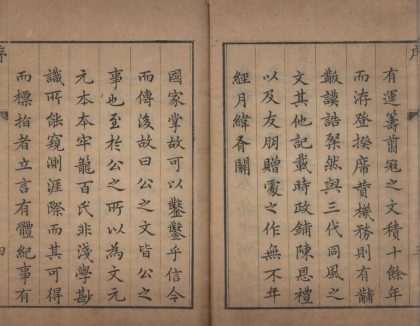 序
有運籌翦寇之文積十餘年
而洊登揆席贊機務則有黼
黻謨誥粲然與三代同風之
文其他記載時政鋪陳恩禮
以及友朋贈處之作無不年
經月緯香關
國家掌故可以鑿鑿乎信今
而傳後故曰公之文皆公之
事也至於公之所以為文元
元本本牢籠百氏非淺學尠
識所能窺測涯際而其可得
而標治者立言有體紀事有
序
四